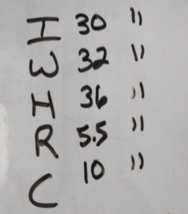 I 30 "
W 32 "
H 36 "
R 5.5 "
C 10 "